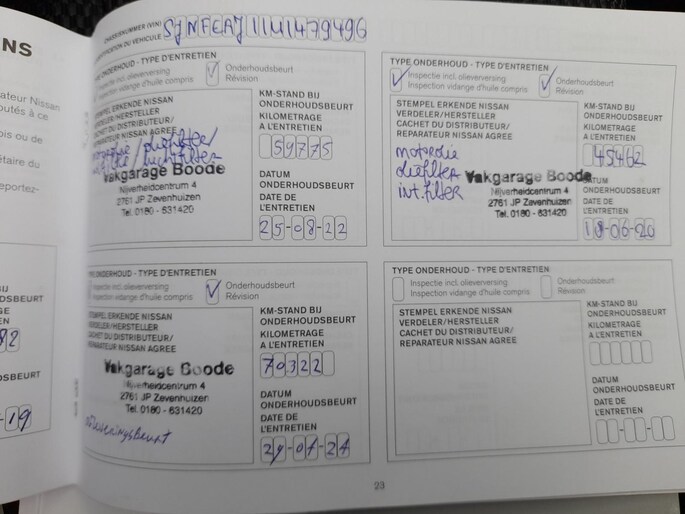 NS
rateur Nissan
putés à ce
ois ou de
étaire du
eportez-
DSBEURT
82
DSBEURT
-19
CHASSISNUMMER (VIN)
IDENTIFICATION DU VÉHICULE
TYPE ONDERHOUD - TYPE D'ENTRETIEN
Inspectie incl. olieverversing
Inspection vidange d'huile compris
Onderhoudsbeurt
Révision
STEMPEL ERKENDE NISSAN
VERDELER/HERSTELLER
CACHET DU DISTRIBUTEUR/
REPARATEUR NISSAN AGREE
motorolie / oliefilter /
luchtfilter
Vakgarage Boode
Nijverheidcentrum 4
2761 JP Zevenhuizen
Tel. 0180 - 631420
KM-STAND BIJ
ONDERHOUDSBEURT
KILOMETRAGE
A L'ENTRETIEN
59775
DATUM
ONDERHOUDSBEURT
DATE DE
L'ENTRETIEN
25-08-22
TYPE ONDERHOUD - TYPE D'ENTRETIEN
Inspectie incl. olieverversing
Inspection vidange d'huile compris
Onderhoudsbeurt
Révision
STEMPEL ERKENDE NISSAN
VERDELER/HERSTELLER
CACHET DU DISTRIBUTEUR/
REPARATEUR NISSAN AGREE
motorolie
oliefilter
int. filter
Vakgarage Boode
Nijverheidcentrum 4
2761 JP Zevenhuizen
Tel. 0180 - 631420
KM-STAND BIJ
ONDERHOUDSBEURT
KILOMETRAGE
A L'ENTRETIEN
45462
DATUM
ONDERHOUDSBEURT
DATE DE
L'ENTRETIEN
18-06-20
TYPE ONDERHOUD - TYPE D'ENTRETIEN
Inspectie incl. olieverversing
Inspection vidange d'huile compris
Onderhoudsbeurt
Révision
STEMPEL ERKENDE NISSAN
VERDELER/HERSTELLER
CACHET DU DISTRIBUTEUR/
REPARATEUR NISSAN AGREE
Vakgarage Boode
Nijverheidcentrum 4
2761 JP Zevenhuizen
Tel. 0180 - 631420
afleveringsbeurt
KM-STAND BIJ
ONDERHOUDSBEURT
KILOMETRAGE
A L'ENTRETIEN
70322
DATUM
ONDERHOUDSBEURT
DATE DE
L'ENTRETIEN
TYPE ONDERHOUD - TYPE D'ENTRETIEN
Inspectie incl. olieverversing
Inspection vidange d'huile compris
Onderhoudsbeurt
Révision
STEMPEL ERKENDE NISSAN
VERDELER/HERSTELLER
CACHET DU DISTRIBUTEUR/
REPARATEUR NISSAN AGREE
KM-STAND BIJ
ONDERHOUDSBEURT
KILOMETRAGE
A L'ENTRETIEN
DATUM
ONDERHOUDSBEURT
DATE DE
L'ENTRETIEN
23